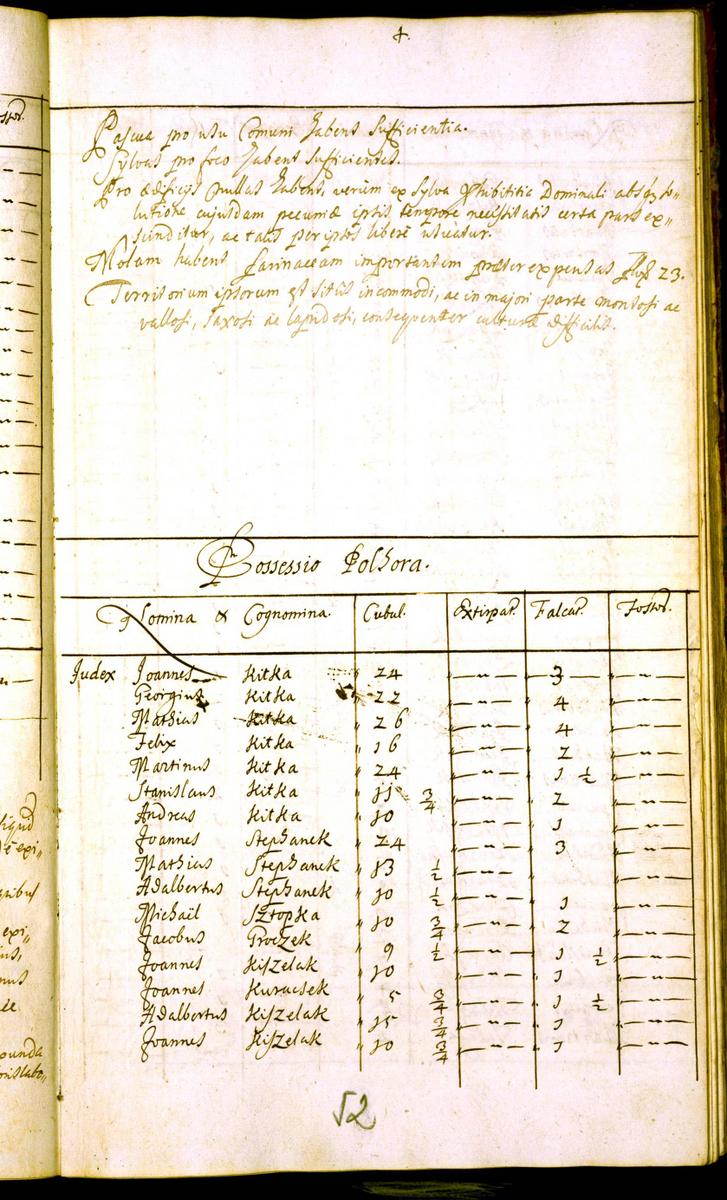 4.
Pascua pro usu Comuni habent Sufficientia.
Sylvas pro foco habent Sufficientes.
Pro ædificijs nullas habent, verum ex Sylva Dominali
lutione cujusdam pecuniæ ipsis tempore necessitatis certa pars ex„
scinditur, ac talis per ipsos libere
Molam habent farinaceam importantem præter expensas 23.
Territorium ipsorum est sitûs incommodi, ac in majori parte montosi ac
vallosi, Saxosi ac lapidosi, consequenter culturæ difficilis.
Possessio Polhora.
Nomina & Cognomina. Cubul. Extirpat. Falcat. Fossor.
Judex Joannes Kitka „ 24 „—„— —3— „—„—
Georgius Kitka „ 22 „—„— 4 „—„—
Mathias Kitka „ 26 „—„— 4 „—„—
Felix Kitka „ 16 „—„— 2 „—„—
Martinus Kitka „ 24 „—„— 1 ½ „—„—
Stanislaus Kitka „ 11 ¾ „—„— 2 „—„—
Andreas Kitka „ 10 „—„— 1 „—„—
Joannes Stephanek „ 24 „—„— 3 „—„—
Mathias Stephanek „ 13 ½ „—„— „—„—
Adalbertus Stephanek „ 10 ½ „—„— 1 „—„—
Michaël Sztopka „ 10 ¾ „—„— 2 „—„—
Jacobus Groczek „ 9 ½ „—„— 1 ½ „—„—
Joannes Kiszelak „ 10 „—„— 1 „—„—
Joannes Kuracsek „ 5 ¾ „—„— 1 ½ „—„—
Adalbertus Kiszelak „ 15 ¾ „—„— 1 „—„—
Joannes Kiszelak „ 10 ¾ „—„— 1 „—„—
52